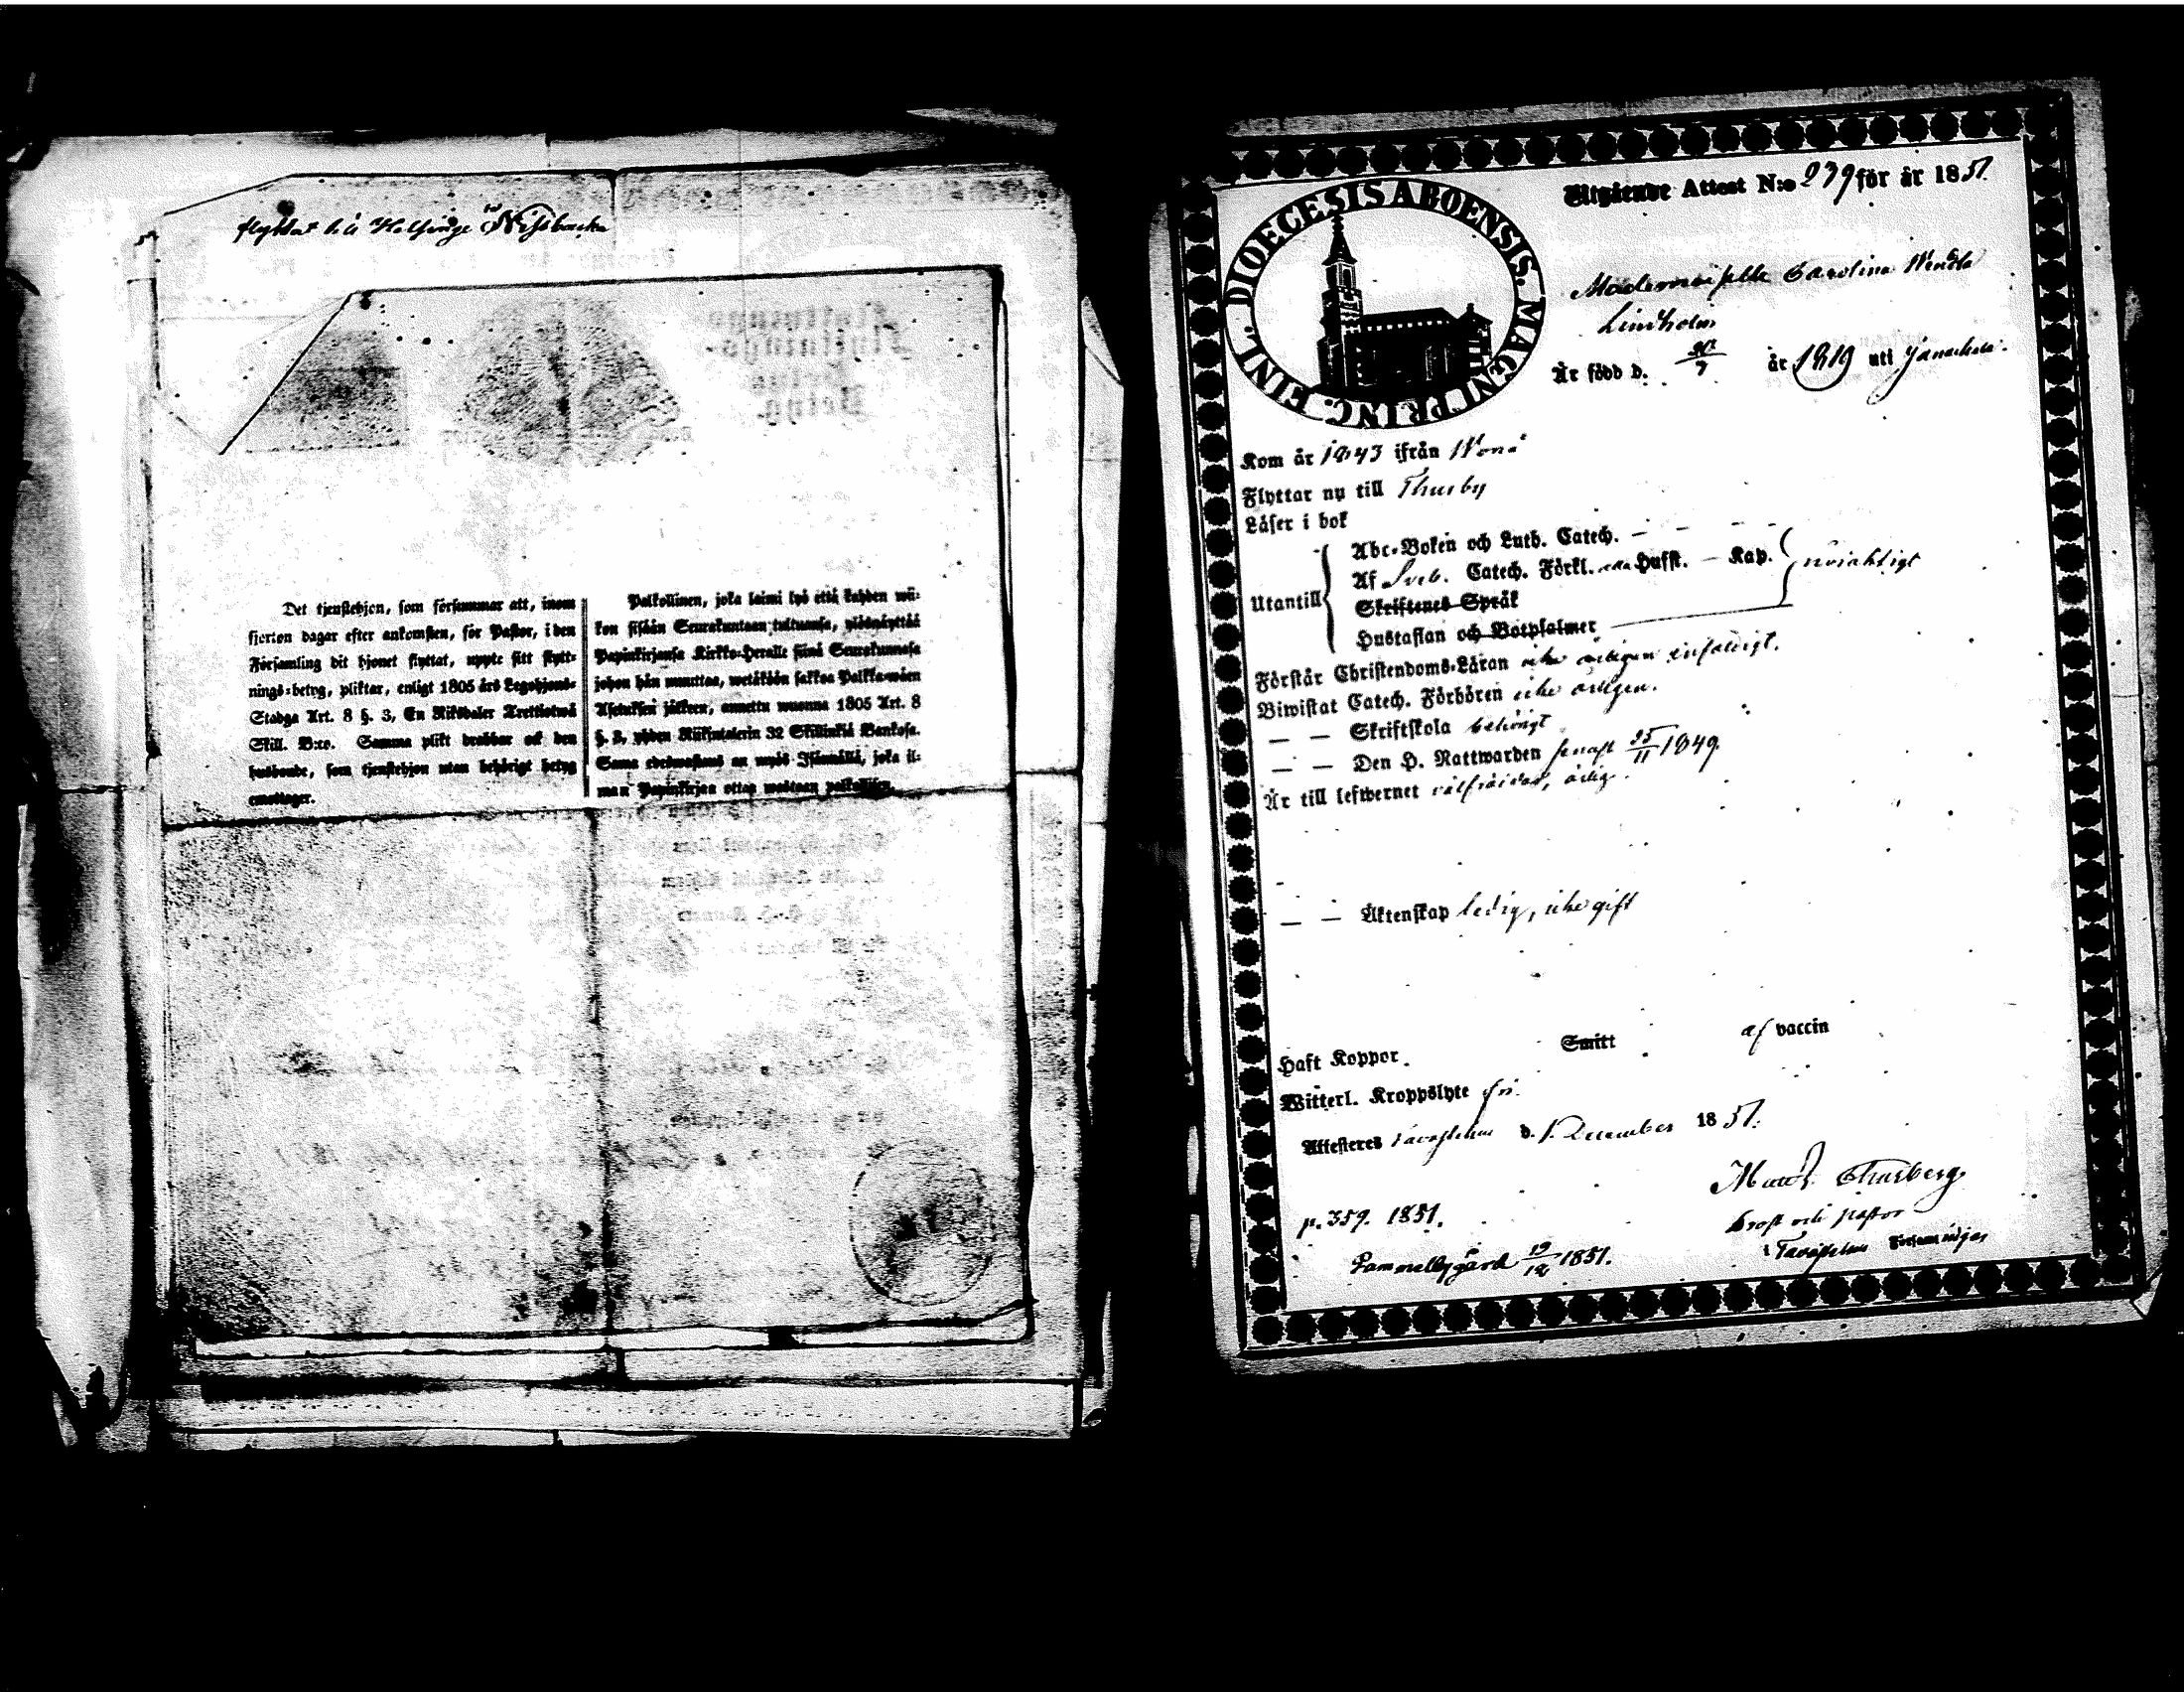 flyttat till Helsinge Nissbacka
Det tjenstehjon, som försummar att, inom
fjorton dagar efter ankomsten, för Pastor, i den
Församling dit hjonet flyttat, uppte sitt flytt-
nings-betyg, pliktar, enligt 1805 års Legohjons-
Stadga Art. 8 §. 3, En Riksdaler Trettiotwå
Skill. B:co. Samma plikt drabbar ock den
husbonde, som tjenstehjon utan behörigt betyg
emottager.
Palkollinen, joka laimi lyö että kahden wii-
kon sisään Seurakuntaan tultuansa, ylösnäyttää
Papinkirjansa Kirkko-Herralle siinä Seurakunnasa
johon hän muuttaa, wetäköön sakkoa Palkka-wäen
Asetuksen jälkeen, annettu wuonna 1805 Art. 8
§. 3, yhden Riikintalerin 32 Skillinkiä Bankosa.
Sama edeswastaus on myös Isännällä, joka il-
man Papinkirjan ottaa wastaan palkollisen.
DIOECESIS ABOENSIS. MAGNI PRINC. FINL.
Utgående Attest N:o 279 för år 1851.
Mademoiselle Carolina Wendla
Lindholm
Är född d. 20/7 år 1819 uti Janackala.
Kom år 1843 ifrån Wånå
Flyttar nu till Thusby
Läser i bok
Abc-Boken och Luth. Catech. — — — —
Af Sveb. Catech. Förkl. Hufst. — Kap. noiaktigt
Utantill
Skriftenes Språk
Hustaflan och Botpsalmer
Förstår Christendoms-Läran
Biwistat Catech. Förhören icke årligen.
— — Skriftskola behörigt
— — Den H. Nattwarden senast 25/11 1849.
Är till lefwernet välfräidad, ärlig.
— — Äktenskap ledig, icke gift
Haft Koppor. Smitt af vaccin
Witterl. Kroppslyte fri.
Attesteres Tavastehus d. 1. December 1851.
Prost och pastor
i Tavastehus Församlingar
p. 359. 1851.
Gammelbygård 19/12 1851.